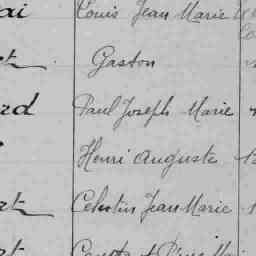 ai Louis Jean Marie
Gaston
rd Paul Joseph Marie
Henri Auguste
rt Celestin Jean Marie
rt